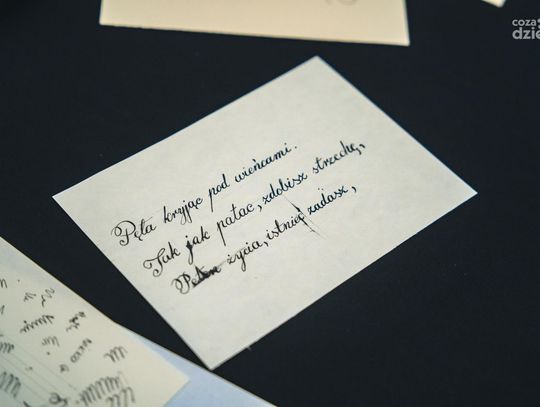 Pęta kryjąc pod wieńcami.
Tak jak pałac, zdobisz strzechę,
Pełen życia, istnieć zadasz,